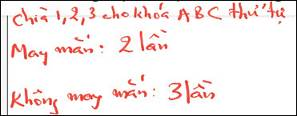 Chìa 1, 2, 3 cho khóa A B C thứ tự
May mắn: 2 lần
Không may mắn: 3 lần